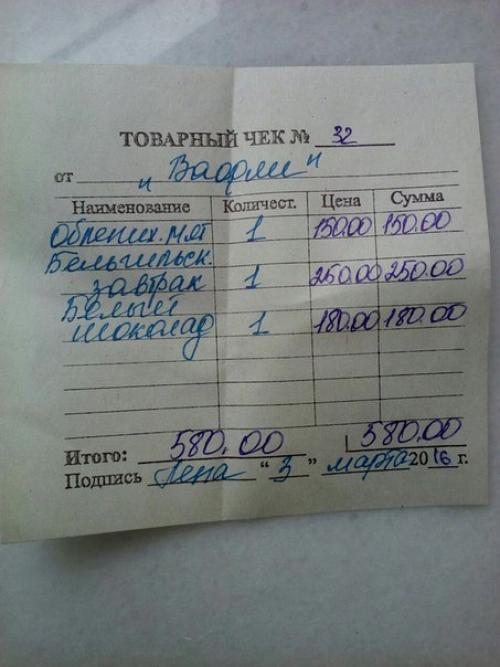 ТОВАРНЫЙ ЧЕК № 32
от „Вафли"
Наименование Количест. Цена Сумма
Облепих. мят 1 150.00 150.00
Бельгийск.
завтрак 1 250.00 250.00
Белый
шоколад 1 180.00 180.00
Итого: 580.00 580.00
Подпись Лена “ 3 ” марта 20 16 г.